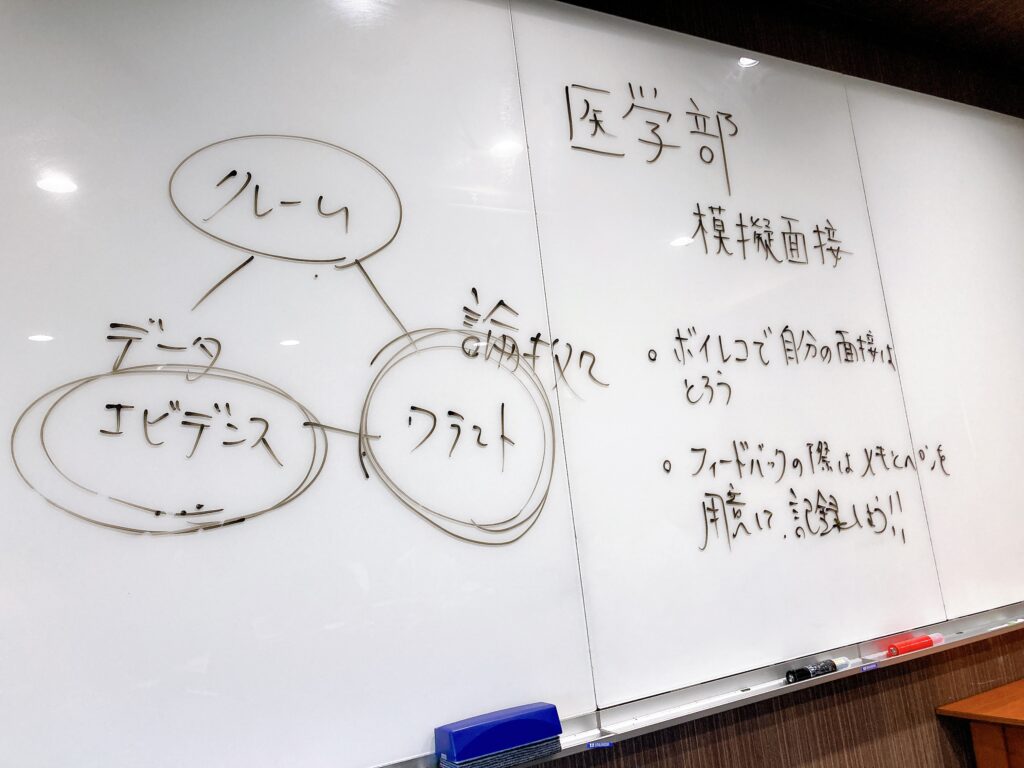 クレーム
データ
エビデンス
論拠
ワラント
医学部
模擬面接
ボイレコで自分の面接は
とろう
フィードバックの際はメモとペンを
用意して記録しよう!!